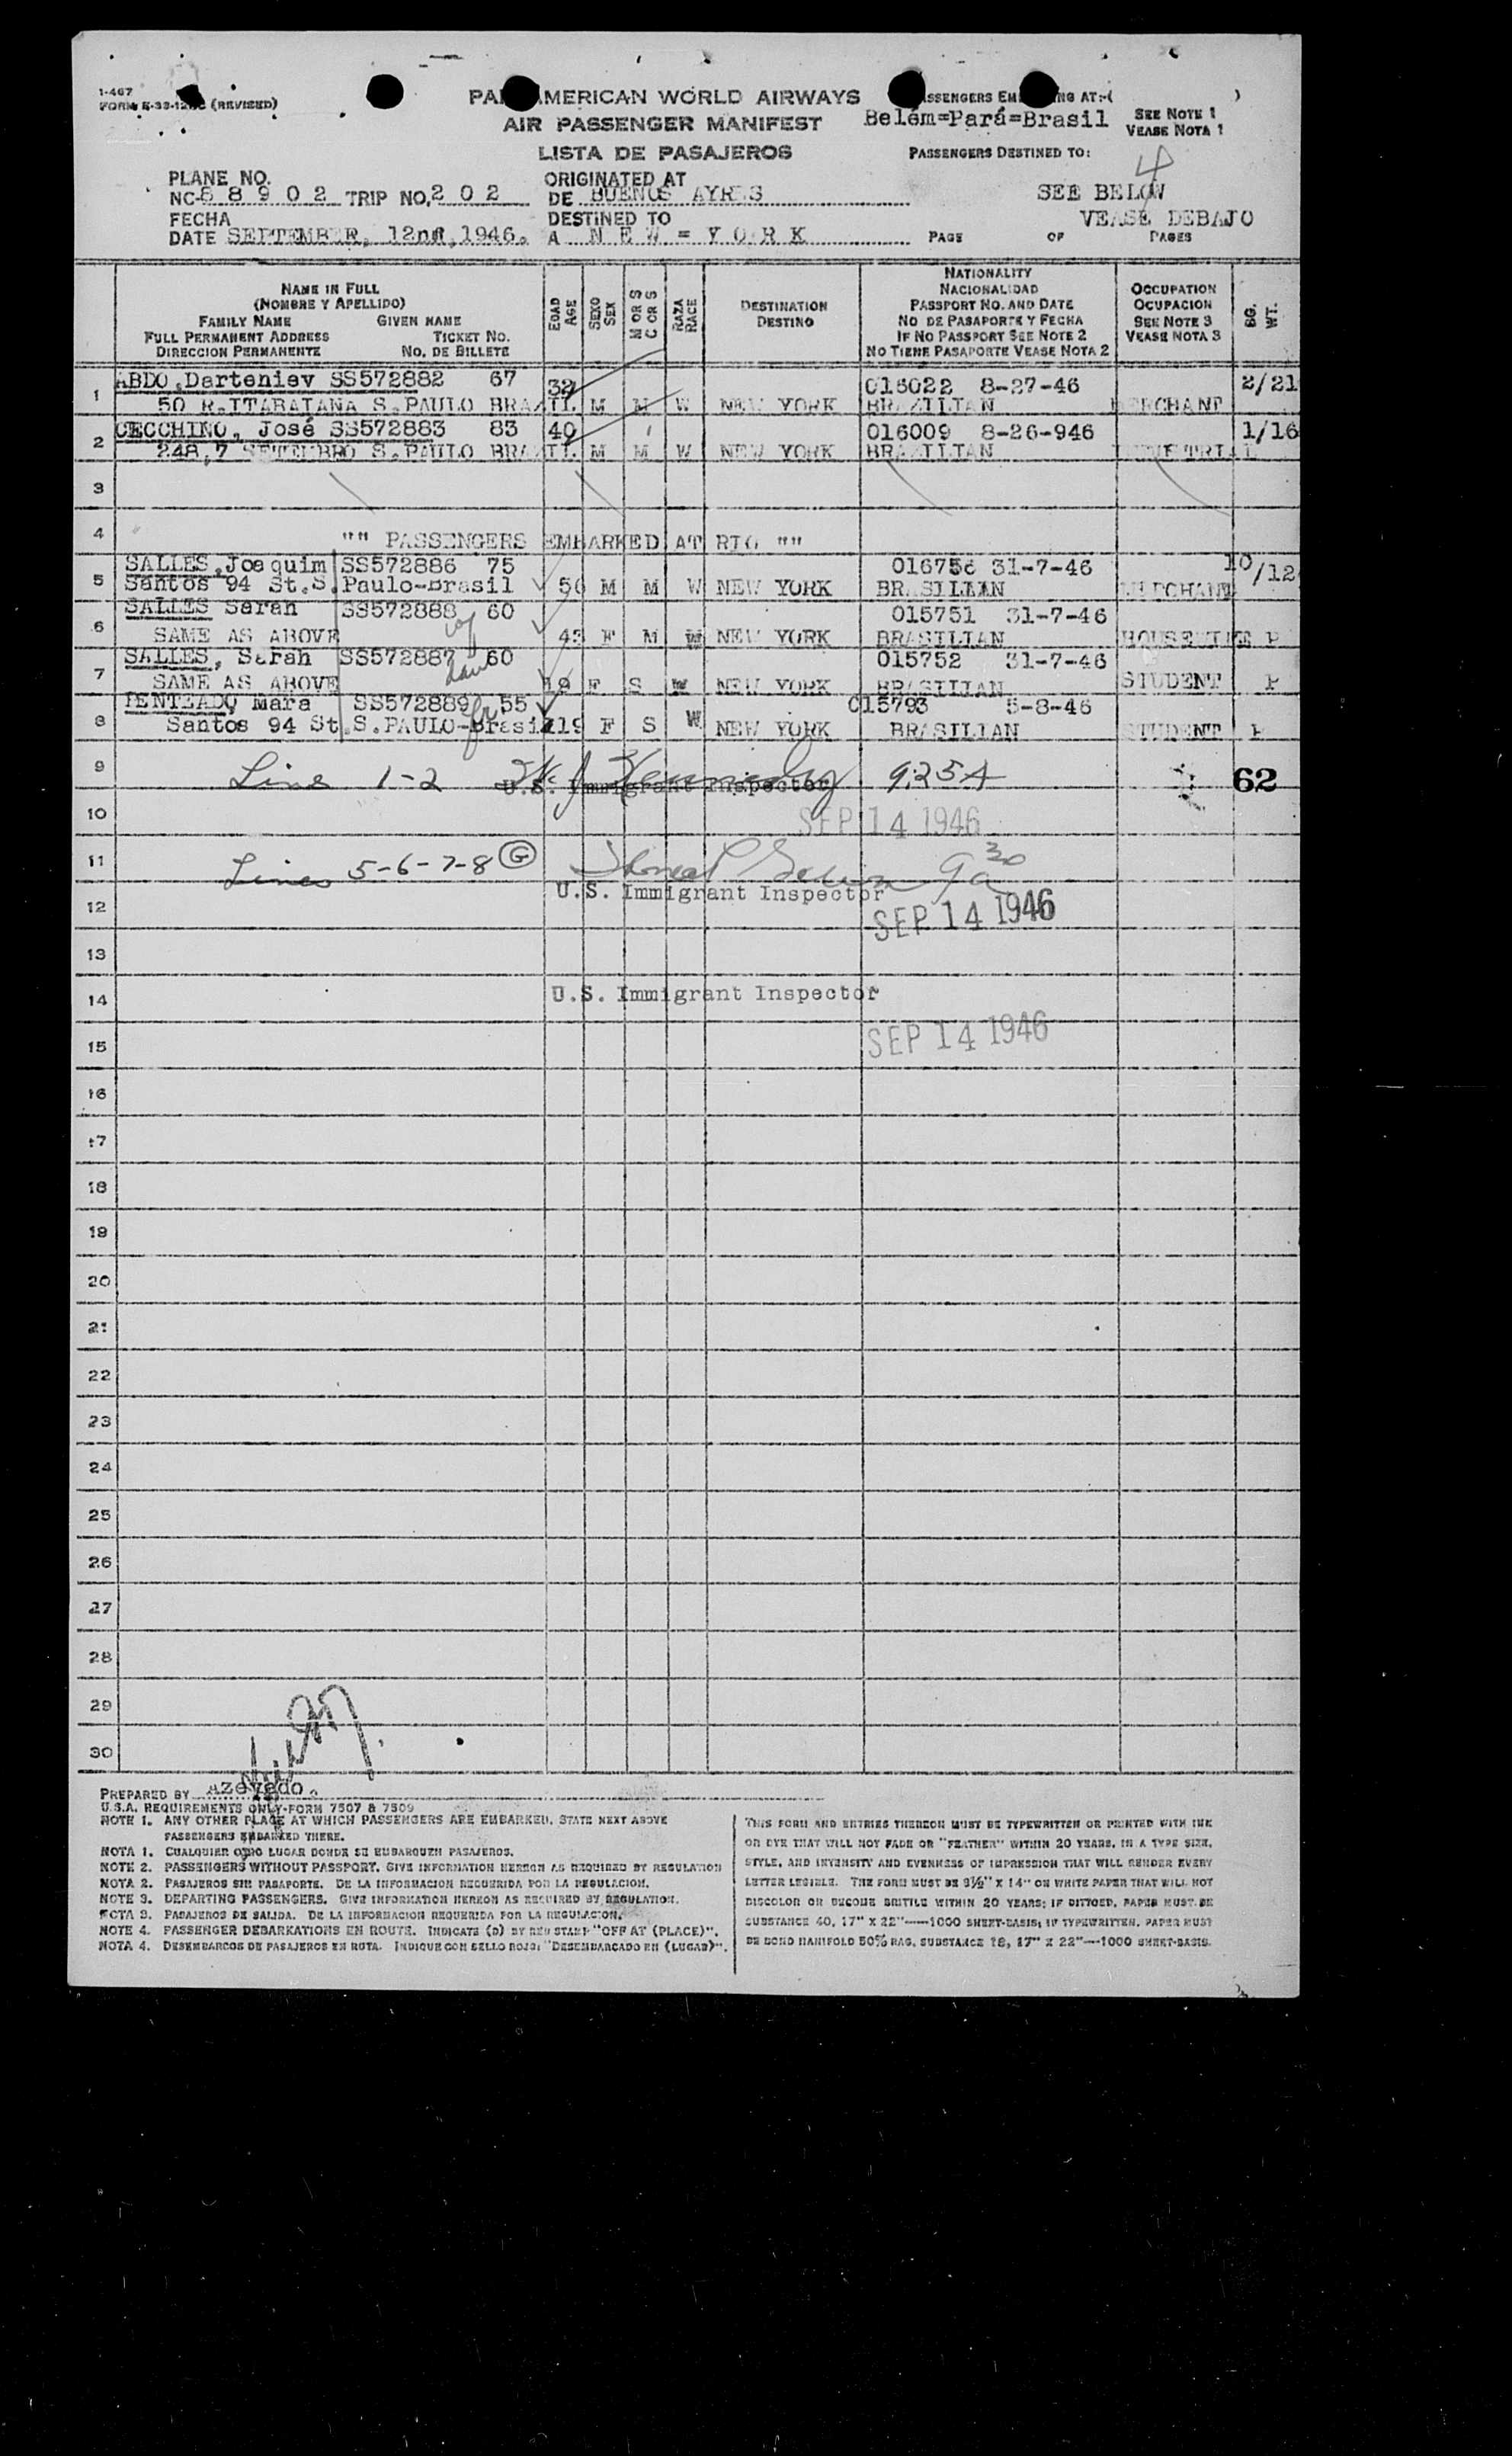 1-467
FORM E-33-12 (REVISED)
PAN AMERICAN WORLD AIRWAYS
AIR PASSENGER MANIFEST
LISTA DE PASAJEROS
PASSENGERS EMBARKING AT:-( )
Belém=Pará=Brasil
SEE NOTE 1
VEASE NOTA 1
PASSENGERS DESTINED TO:
4
SEE BELOW
VEASE DEBAJO
PLANE NO.
NC-88902 TRIP NO. 202
ORIGINATED AT
DE BUENOS AYRES
FECHA
DATE SEPTEMBER, 12nd, 1946.
DESTINED TO
A NEW = YORK
PAGE OF PAGES
NAME IN FULL
(NOMBRE Y APELLIDO)
FAMILY NAME GIVEN NAME
FULL PERMANENT ADDRESS TICKET NO.
DIRECCION PERMANENTE NO. DE BILLETE
EDAD AGE
SEXO SEX
M OR S C OR S
RAZA RACE
DESTINATION
DESTINO
NATIONALITY
NACIONALIDAD
PASSPORT NO. AND DATE
NO DE PASAPORTE Y FECHA
IF NO PASSPORT SEE NOTE 2
NO TIENE PASAPORTE VEASE NOTA 2
OCCUPATION
OCUPACION
SEE NOTE 3
VEASE NOTA 3
BG. WT.
1 ABDO, Darteniev SS572882 67 32 016022 8-27-46 2/21
50 R.ITABAIANA S.PAULO BRAZIL M M W NEW YORK BRAZILIAN MERCHANT
2 CECCHINO, José SS572883 83 40 016009 8-26-946 1/16
248,7 SETEMBRO S.PAULO BRAZIL M M W NEW YORK BRAZILIAN
3
4 "" PASSENGERS EMBARKED AT RIO ""
SALLES, Joaquim SS572886 75 31-7-46 10/12
5 Santos 94 St.S.Paulo-Brasil M M W NEW YORK BRASILIAN MERCHANT
SALLES Sarah SS572888 60 015751 31-7-46
6 SAME AS ABOVE F M W NEW YORK BRASILIAN HOUSEWIFE P
SALLES, Sarah SS572887 60 015752 31-7-46
7 SAME AS ABOVE 19 F S W NEW YORK BRASILIAN STUDENT P
PENTEADO Mara SS572889 55 015793 5-8-46
8 Santos 94 St.S.PAULO-Brasil 19 F S W NEW YORK BRASILIAN STUDENT P
9 Lines 1-2 Kennedy 9:25A 62
U.S. Immigrant Inspector
10 SEP 14 1946
11 Lines 5-6-7-8 G 9 30 a
U.S. Immigrant Inspector
12 SEP 14 1946
13
14 U.S. Immigrant Inspector
15 SEP 14 1946
16
17
18
19
20
21
22
23
24
25
26
27
28
29
30
PREPARED BY Azevedo.
U.S.A. REQUIREMENTS ONLY-FORM 7507 & 7509
NOTE 1. ANY OTHER PLACE AT WHICH PASSENGERS ARE EMBARKED, STATE NEXT ABOVE
PASSENGERS EMBARKED THERE.
NOTA 1. CUALQUIER OTRO LUGAR DONDE SE EMBARQUEN PASAJEROS.
NOTE 2. PASSENGERS WITHOUT PASSPORT. GIVE INFORMATION HEREON AS REQUIRED BY REGULATION
NOTA 2. PASAJEROS SIN PASAPORTE. DE LA INFORMACION REQUERIDA POR LA REGULACION.
NOTE 3. DEPARTING PASSENGERS. GIVE INFORMATION HEREON AS REQUIRED BY REGULATION.
NOTA 3. PASAJEROS DE SALIDA. DE LA INFORMACION REQUERIDA POR LA REGULACION.
NOTE 4. PASSENGER DEBARKATIONS EN ROUTE. INDICATE (D) BY RED STAMP "OFF AT (PLACE)".
NOTA 4. DESEMBARCOS DE PASAJEROS EN RUTA. INDIQUE CON SELLO ROJO: "DESEMBARCADO EN (LUGAR)".
THIS FORM AND ENTRIES THEREON MUST BE TYPEWRITTEN OR PRINTED WITH INK
OR DYE THAT WILL NOT FADE OR "FEATHER" WITHIN 20 YEARS, IN A TYPE SIZE,
STYLE, AND INTENSITY AND EVENNESS OF IMPRESSION THAT WILL RENDER EVERY
LETTER LEGIBLE. THE FORM MUST BE 8½" X 14" ON WHITE PAPER THAT WILL NOT
DISCOLOR OR BECOME BRITTLE WITHIN 20 YEARS; IF DITTOED, PAPER MUST BE
SUBSTANCE 40, 17" X 22"—1000 SHEET-BASIS; IF TYPEWRITTEN, PAPER MUST
BE BOND MANIFOLD 50% RAG, SUBSTANCE 18, 17" X 22"—1000 SHEET-BASIS.